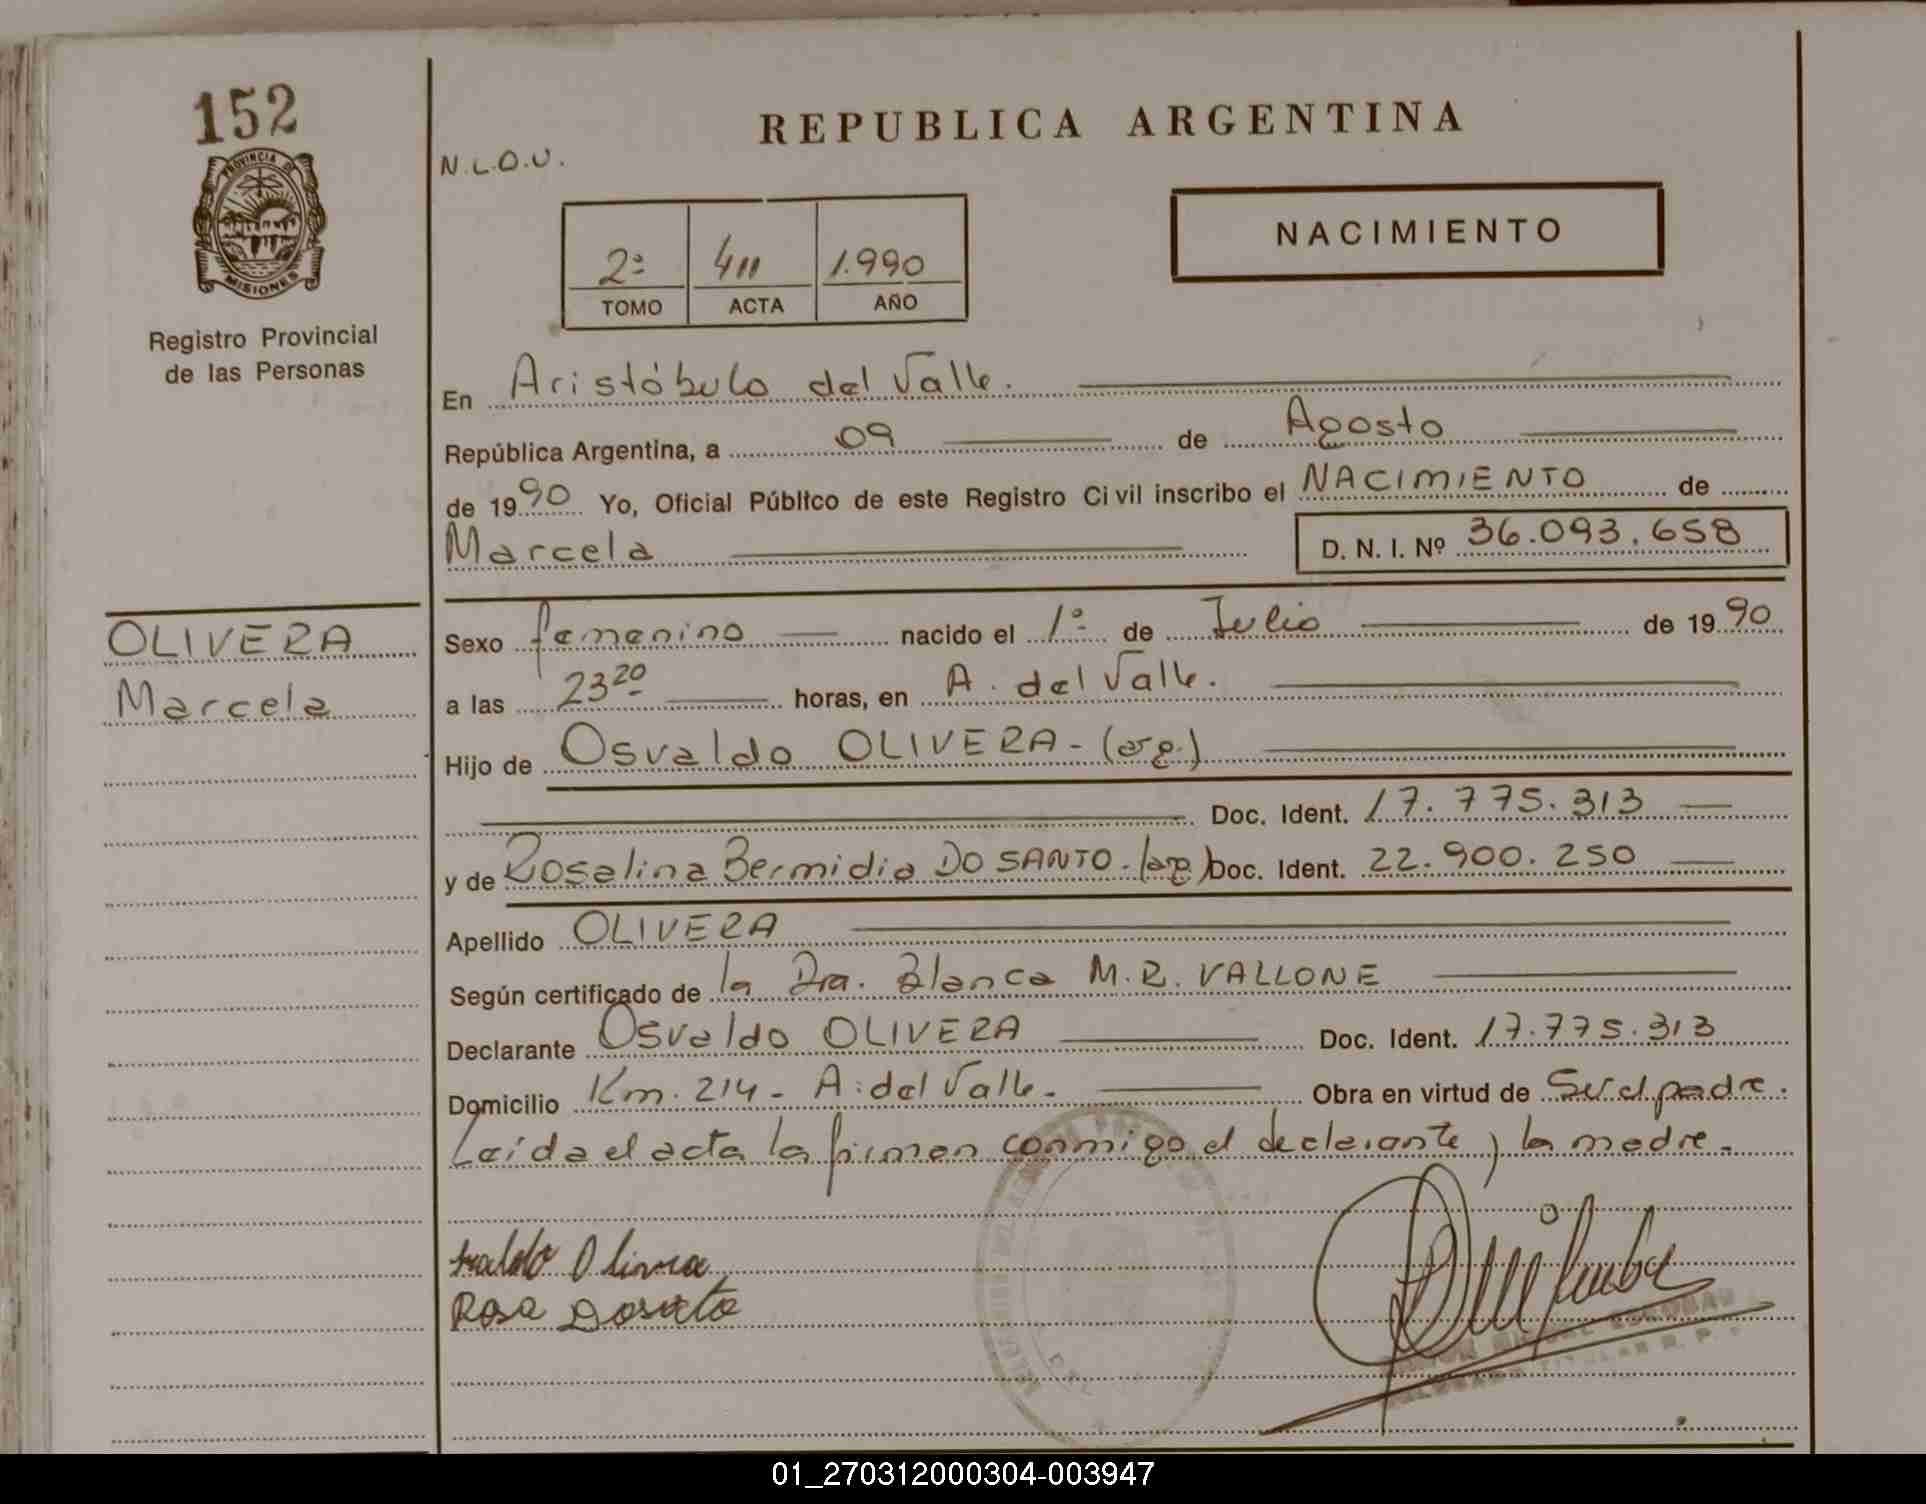 152
PROVINCIA DE
MISIONES
Registro Provincial
de las Personas
OLIVERA
Marcela
REPUBLICA ARGENTINA
N.L.O.U.
NACIMIENTO
2º 411 1.990
TOMO ACTA AÑO
En Aristóbulo del Valle.
República Argentina, a 09 de Agosto
de 1990 Yo, Oficial Público de este Registro Civil inscribo el NACIMIENTO de
Marcela D. N. I. Nº 36.093.658
Sexo femenino nacido el 1º de Julio de 1990
a las 23 20 horas, en A. del Valle.
Hijo de Osvaldo OLIVERA - (arg.)
Doc. Ident. 17.775.313
y de Rosalina Bermidia DO SANTO - (arg) Doc. Ident. 22.900.250
Apellido OLIVERA
Según certificado de la Dra. Blanca M.R. VALLONE
Declarante Osvaldo OLIVERA Doc. Ident. 17.775.313
Domicilio Km. 214 - A. del Valle. Obra en virtud de Ser el padre.
Leída el acta la firman conmigo el declarante y la madre.
Olivera
Rosa
01_270312000304-003947